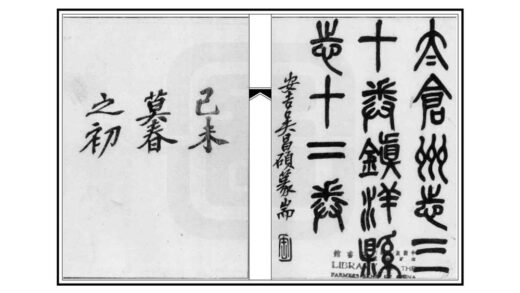 太倉州志三
十卷鎮洋縣
志十二卷
安吉吳昌碩篆耑
LIBRA THE
己未
莫春
之初